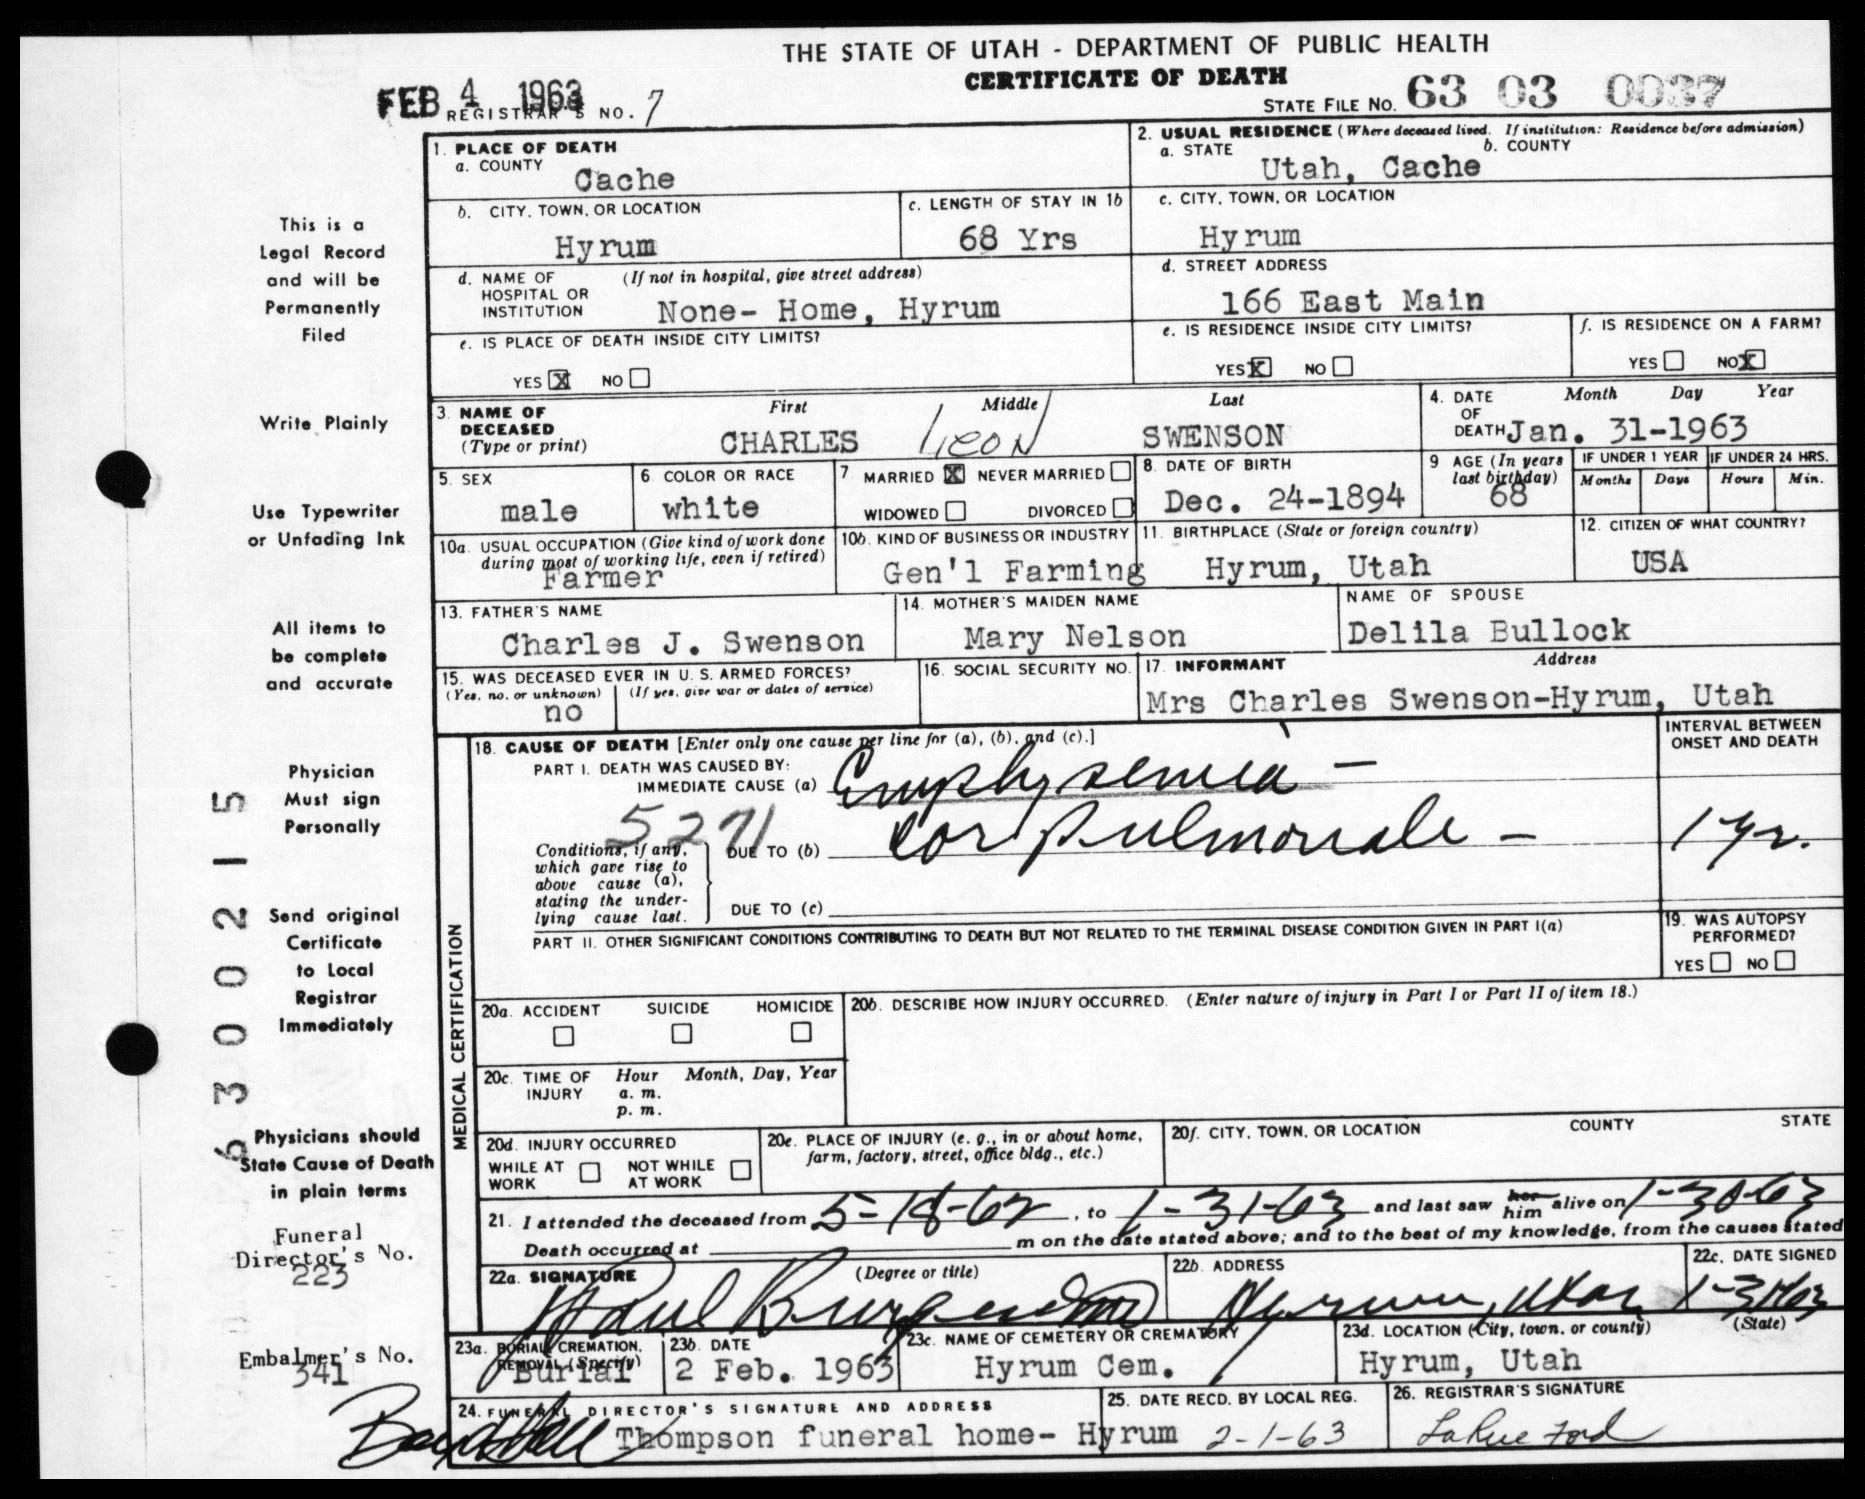 THE STATE OF UTAH - DEPARTMENT OF PUBLIC HEALTH
CERTIFICATE OF DEATH
FEB 4 1963
REGISTRAR'S NO. 7
STATE FILE NO. 63 03 0037
1. PLACE OF DEATH
a. COUNTY
Cache
2. USUAL RESIDENCE (Where deceased lived. If institution: Residence before admission)
a. STATE b. COUNTY
Utah, Cache
b. CITY, TOWN, OR LOCATION
Hyrum
c. LENGTH OF STAY IN 1b
68 Yrs
c. CITY, TOWN, OR LOCATION
Hyrum
d. NAME OF HOSPITAL OR INSTITUTION (If not in hospital, give street address)
None- Home, Hyrum
d. STREET ADDRESS
166 East Main
e. IS PLACE OF DEATH INSIDE CITY LIMITS?
YES X NO
e. IS RESIDENCE INSIDE CITY LIMITS?
YES X NO
f. IS RESIDENCE ON A FARM?
YES NO X
3. NAME OF DECEASED (Type or print)
First Middle Last
CHARLES Leon SWENSON
4. DATE OF DEATH Month Day Year
Jan. 31-1963
5. SEX
male
6. COLOR OR RACE
white
7 MARRIED X NEVER MARRIED
WIDOWED DIVORCED
8. DATE OF BIRTH
Dec. 24-1894
9 AGE (In years last birthday)
68
IF UNDER 1 YEAR IF UNDER 24 HRS.
Months Days Hours Min.
10a. USUAL OCCUPATION (Give kind of work done during most of working life, even if retired)
Farmer
10b. KIND OF BUSINESS OR INDUSTRY
Gen'l Farming
11. BIRTHPLACE (State or foreign country)
Hyrum, Utah
12. CITIZEN OF WHAT COUNTRY?
USA
13. FATHER'S NAME
Charles J. Swenson
14. MOTHER'S MAIDEN NAME
Mary Nelson
NAME OF SPOUSE
Delila Bullock
15. WAS DECEASED EVER IN U. S. ARMED FORCES?
(Yes, no, or unknown) (If yes, give war or dates of service)
no
16. SOCIAL SECURITY NO.
17. INFORMANT Address
Mrs Charles Swenson-Hyrum, Utah
MEDICAL CERTIFICATION
18. CAUSE OF DEATH [Enter only one cause per line for (a), (b), and (c).]
INTERVAL BETWEEN ONSET AND DEATH
PART I. DEATH WAS CAUSED BY:
IMMEDIATE CAUSE (a) Emphysemia -
5271
Conditions, if any, which gave rise to above cause (a), stating the underlying cause last.
DUE TO (b) Cor Pulmonale - 1 yr.
DUE TO (c)
PART II. OTHER SIGNIFICANT CONDITIONS CONTRIBUTING TO DEATH BUT NOT RELATED TO THE TERMINAL DISEASE CONDITION GIVEN IN PART I(a)
19. WAS AUTOPSY PERFORMED?
YES NO
20a. ACCIDENT SUICIDE HOMICIDE
20b. DESCRIBE HOW INJURY OCCURRED. (Enter nature of injury in Part I or Part II of item 18.)
20c. TIME OF INJURY Hour Month, Day, Year
a. m.
p. m.
20d. INJURY OCCURRED
WHILE AT WORK NOT WHILE AT WORK
20e. PLACE OF INJURY (e. g., in or about home, farm, factory, street, office bldg., etc.)
20f. CITY, TOWN, OR LOCATION COUNTY STATE
21. I attended the deceased from 5-18-62, to 1-31-63 and last saw her him alive on 1-30-63
Death occurred at m on the date stated above; and to the best of my knowledge, from the causes stated
22a. SIGNATURE (Degree or title)
Paul Burgess MD
22b. ADDRESS
Hyrum, Utah
22c. DATE SIGNED
1-31-63
23a. BURIAL, CREMATION, REMOVAL (Specify)
Burial
23b. DATE
2 Feb. 1963
23c. NAME OF CEMETERY OR CREMATORY
Hyrum Cem.
23d. LOCATION (City, town, or county) (State)
Hyrum, Utah
24. FUNERAL DIRECTOR'S SIGNATURE AND ADDRESS
Thompson funeral home- Hyrum
25. DATE RECD. BY LOCAL REG.
2-1-63
26. REGISTRAR'S SIGNATURE
LaRue Ford
This is a
Legal Record
and will be
Permanently
Filed
Write Plainly
Use Typewriter
or Unfading Ink
All items to
be complete
and accurate
Physician
Must sign
Personally
Send original
Certificate
to Local
Registrar
Immediately
Physicians should
State Cause of Death
in plain terms
Funeral
Director's No.
223
Embalmer's No.
341
6300215